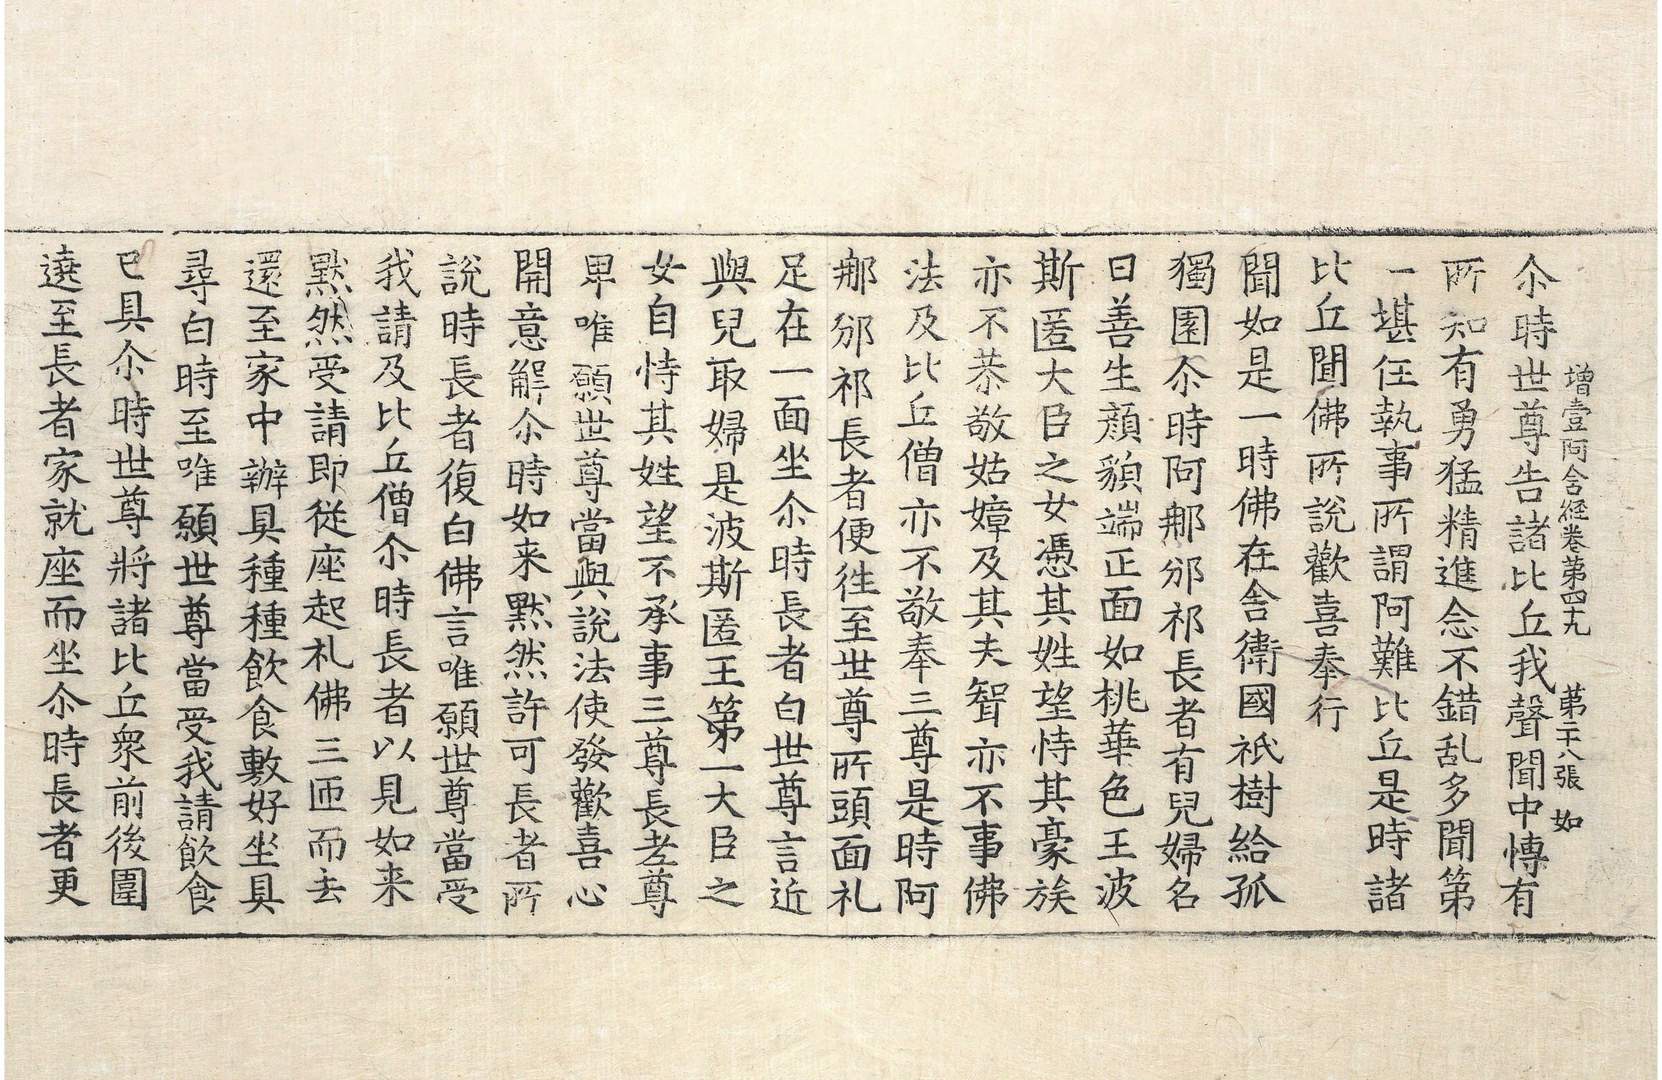 增壹阿含経卷第四十九 第二十八張 如
尒時世尊告諸比丘我聲聞中博有
所知有勇猛精進念不錯乱多聞第
一堪任執事所謂阿難比丘是時諸
比丘聞佛所說歡喜奉行
聞如是一時佛在舍衛國祇樹給孤
獨園尒時阿那邠祁長者有兒婦名
曰善生顔貌端正面如桃華色王波
斯匿大臣之女憑其姓望恃其豪族
亦不恭敬姑嫜及其夫智亦不事佛
法及比丘僧亦不敬奉三尊是時阿
那邠祁長者便徃至世尊所頭面礼
足在一面坐尒時長者白世尊言近
與兒取婦是波斯匿王第一大臣之
女自恃其姓望不承事三尊長老尊
卑唯願世尊當與說法使發歡喜心
開意解尒時如来默然許可長者所
說時長者復白佛言唯願世尊當受
我請及比丘僧尒時長者以見如来
默然受請即從座起礼佛三匝而去
還至家中辦具種種飲食敷好坐具
尋白時至唯願世尊當受我請飲食
已具尒時世尊將諸比丘衆前後圍
遶至長者家就座而坐尒時長者更